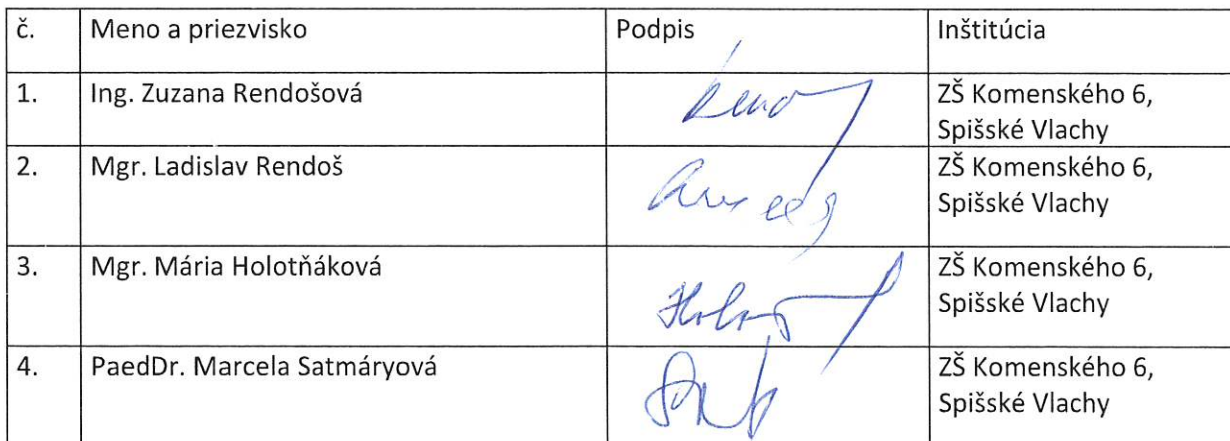 č. Meno a priezvisko Podpis Inštitúcia
1. Ing. Zuzana Rendošová ZŠ Komenského 6,
Spišské Vlachy
2. Mgr. Ladislav Rendoš ZŠ Komenského 6,
Spišské Vlachy
3. Mgr. Mária Holotňáková ZŠ Komenského 6,
Spišské Vlachy
4. PaedDr. Marcela Satmáryová ZŠ Komenského 6,
Spišské Vlachy